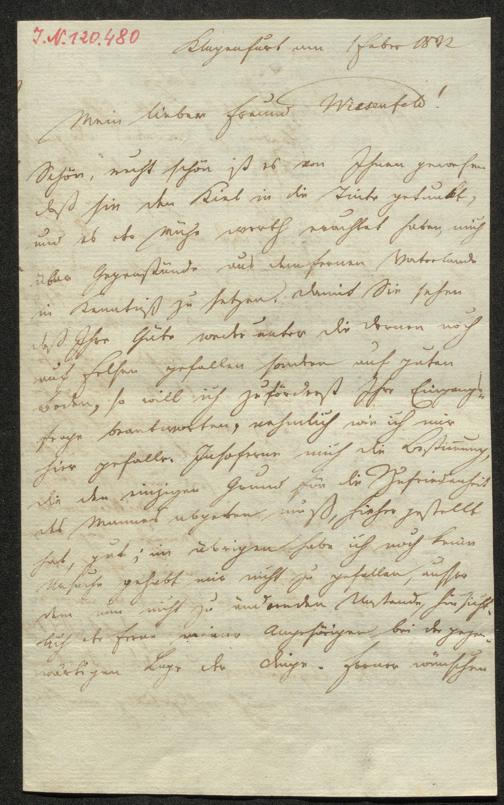 I.N. 120.480
Klagenfurt am 1 Feber
Mein lieber Freund Wiesenfeld!
Schön, recht schön ist es von Ihnen gewesen
daß Sie den Kiel in die Tinte getunkt,
und es der Mühe werth erachtet haben, mich
über Gegenstände aus dem fernen Vaterlande
in Kenntniß zu setzen. Damit Sie sehen
daß Ihre Güte weder unter die Dornen noch
auf Felsen gefallen sondern auf guten
Boden, so will ich zuförderst Ihre Eingangs-
frage beantworten, nehmlich wie ich mir
hier gefalle. Insoferne mich die Bestimmung,
die den einzigen Grund für die Zufriedenheit
des Mannes abgeben muß, hieher gestellt
hat, gut; im übrigen habe ich noch keine
Ursache gehabt mir nicht zu gefallen, ausser
dem nun nicht zu ändernden Umstande hinsicht-
lich der Ferne meiner Angehörigen bei der gegen-
wärtigen Lage der Dinge. Ferner wünschen